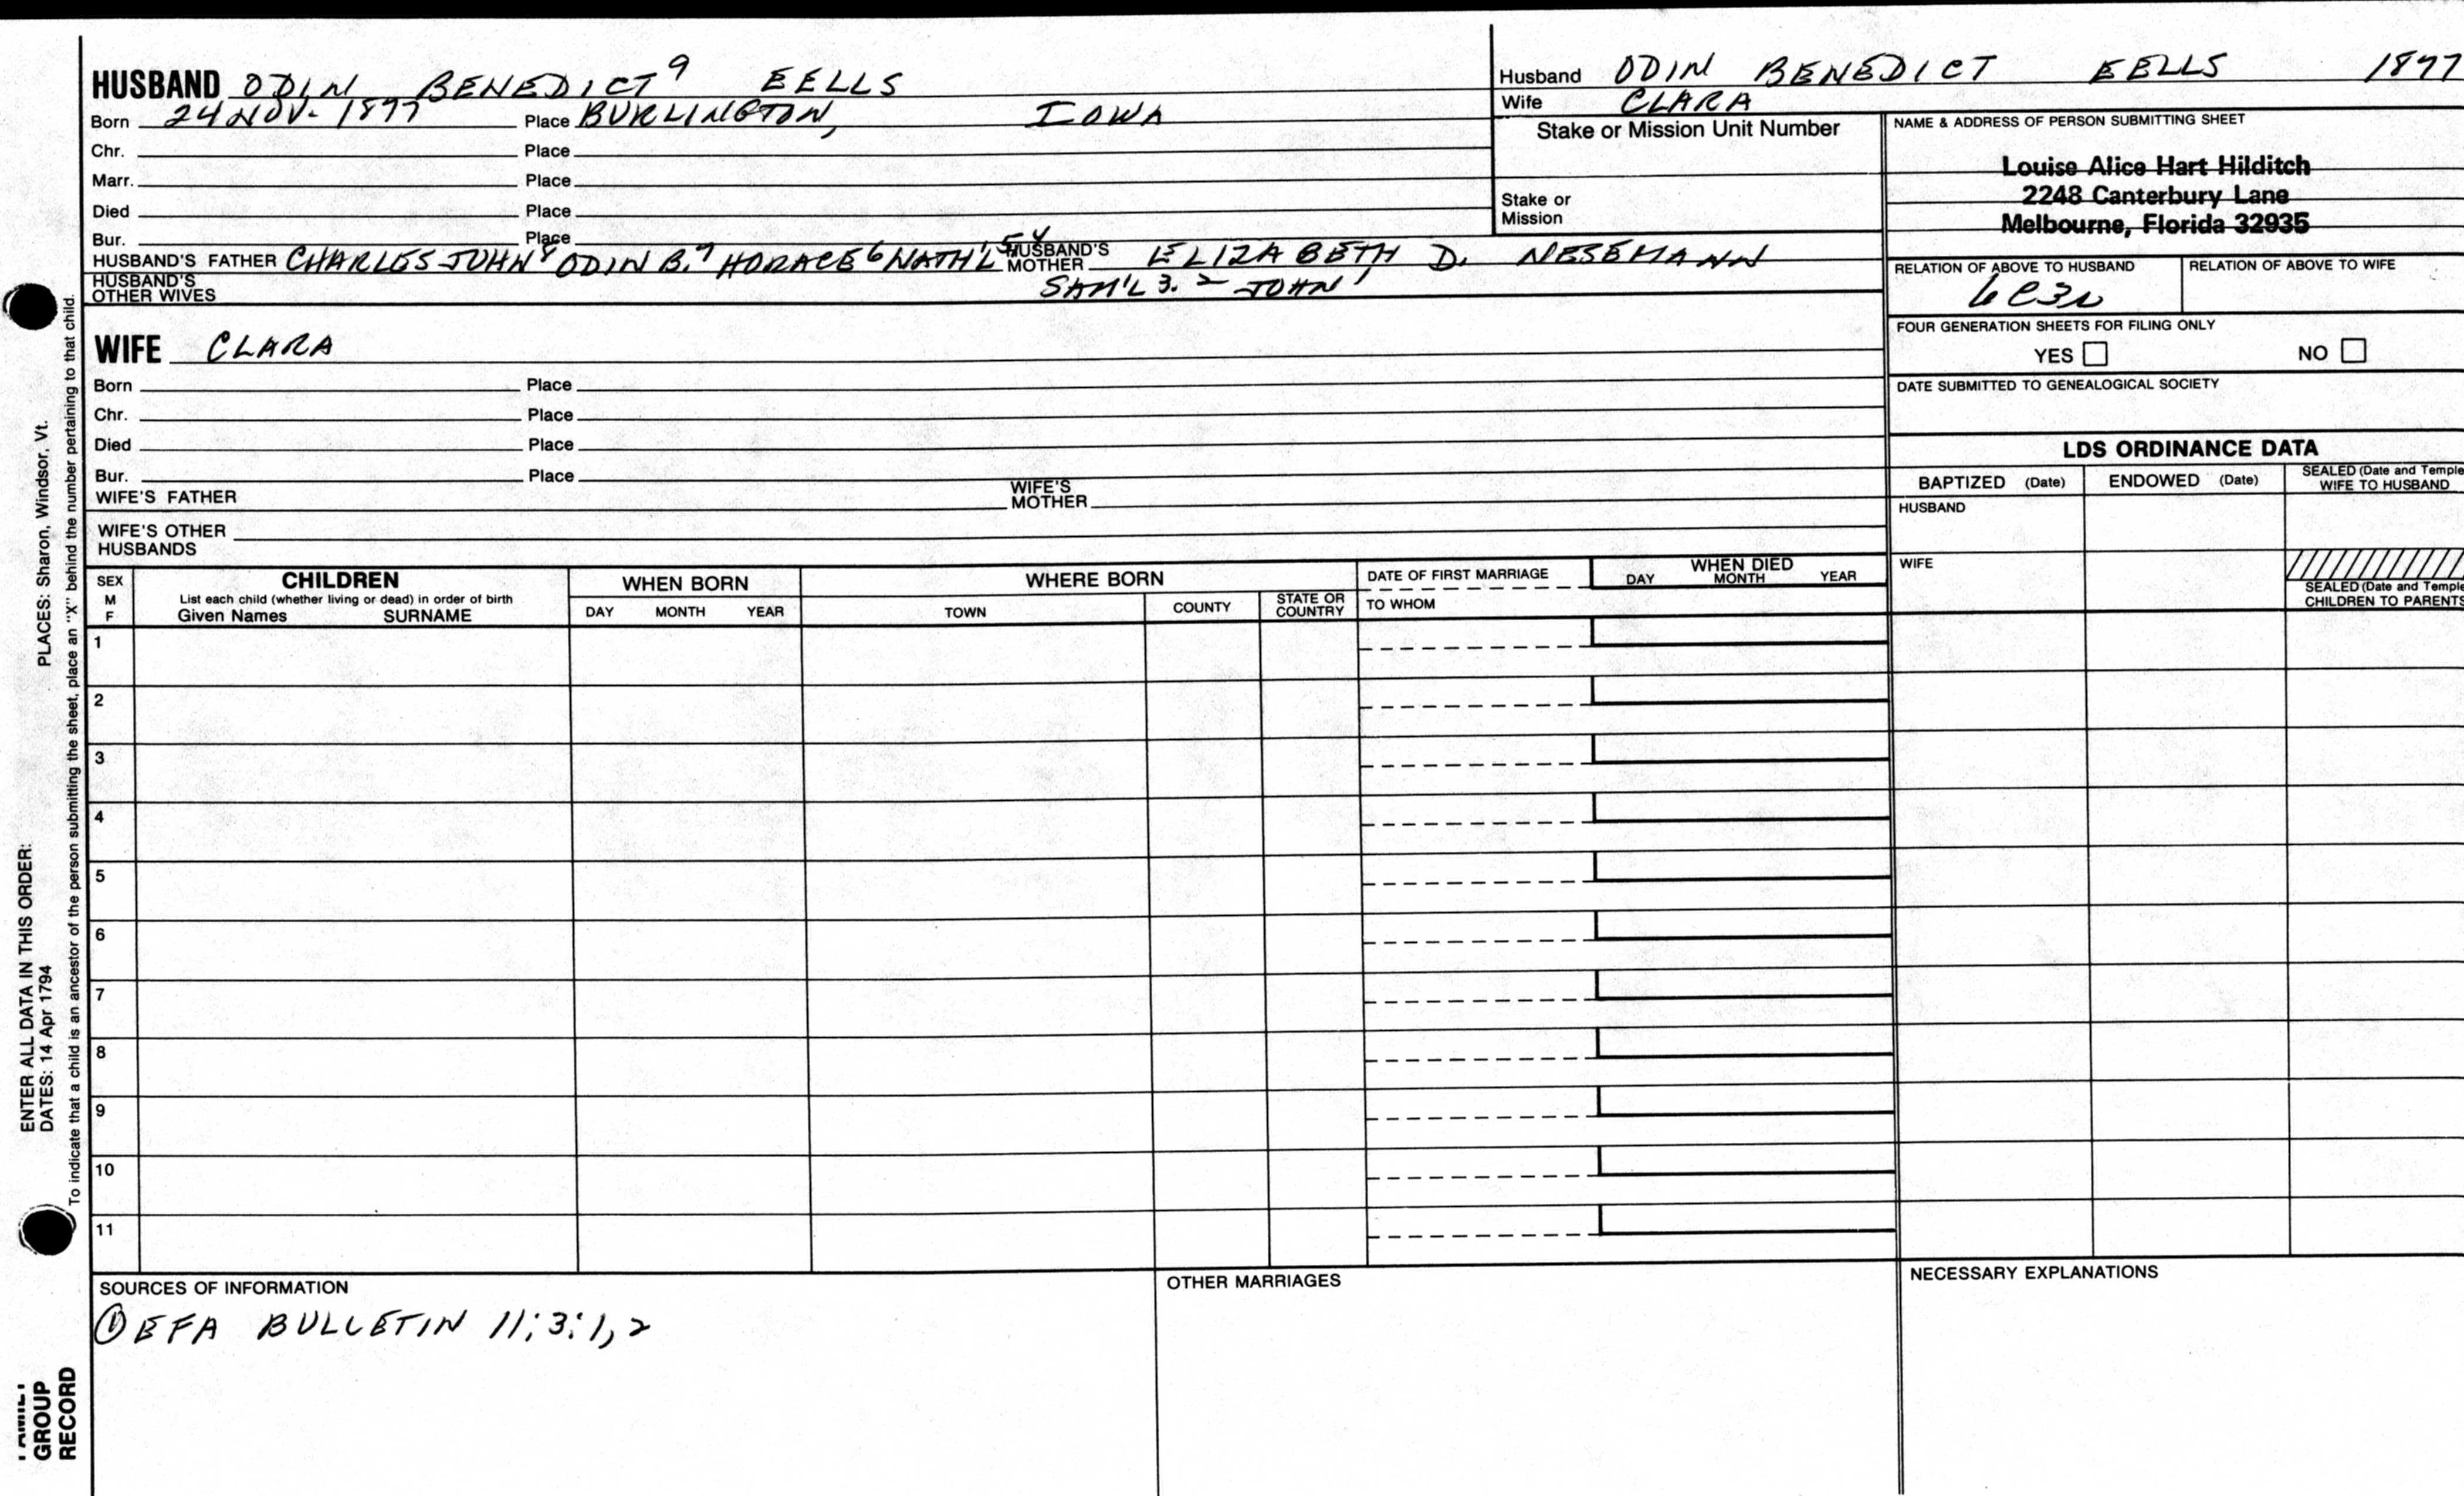 HUSBAND ODIN BENEDICT⁹ EELLS
Born 24 NOV. 1897 Place BURLINGTON, IOWA
Chr. Place
Marr. Place
Died Place
Bur. Place
HUSBAND'S FATHER CHARLES JOHN⁸ ODIN B.⁷ HORACE⁶ NATH'L⁵ ⁴ HUSBAND'S MOTHER ELIZABETH D. NESEMANN
HUSBAND'S OTHER WIVES SAM'L 3. 2 JOHN¹
Husband ODIN BENEDICT EELLS 1897
Wife CLARA
Stake or Mission Unit Number
Stake or
Mission
NAME & ADDRESS OF PERSON SUBMITTING SHEET
Louise Alice Hart Hilditch
2248 Canterbury Lane
Melbourne, Florida 32935
RELATION OF ABOVE TO HUSBAND RELATION OF ABOVE TO WIFE
6C3R
FOUR GENERATION SHEETS FOR FILING ONLY
YES NO
DATE SUBMITTED TO GENEALOGICAL SOCIETY
WIFE CLARA
Born Place
Chr. Place
Died Place
Bur. Place
WIFE'S FATHER WIFE'S MOTHER
WIFE'S OTHER
HUSBANDS
LDS ORDINANCE DATA
BAPTIZED (Date) ENDOWED (Date) SEALED (Date and Temple
WIFE TO HUSBAND
HUSBAND
WIFE
SEALED (Date and Temple
CHILDREN TO PARENTS
SEX M F CHILDREN WHEN BORN WHERE BORN DATE OF FIRST MARRIAGE WHEN DIED
List each child (whether living or dead) in order of birth
Given Names SURNAME DAY MONTH YEAR TOWN COUNTY STATE OR COUNTRY TO WHOM DAY MONTH YEAR
1
2
3
4
5
6
7
8
9
10
11
SOURCES OF INFORMATION OTHER MARRIAGES NECESSARY EXPLANATIONS
① EFA BULLETIN 11; 3: 1, 2
ENTER ALL DATA IN THIS ORDER:
DATES: 14 Apr 1794 PLACES: Sharon, Windsor, Vt.
To indicate that a child is an ancestor of the person submitting the sheet, place an "X" behind the number pertaining to that child.
FAMILY
GROUP
RECORD